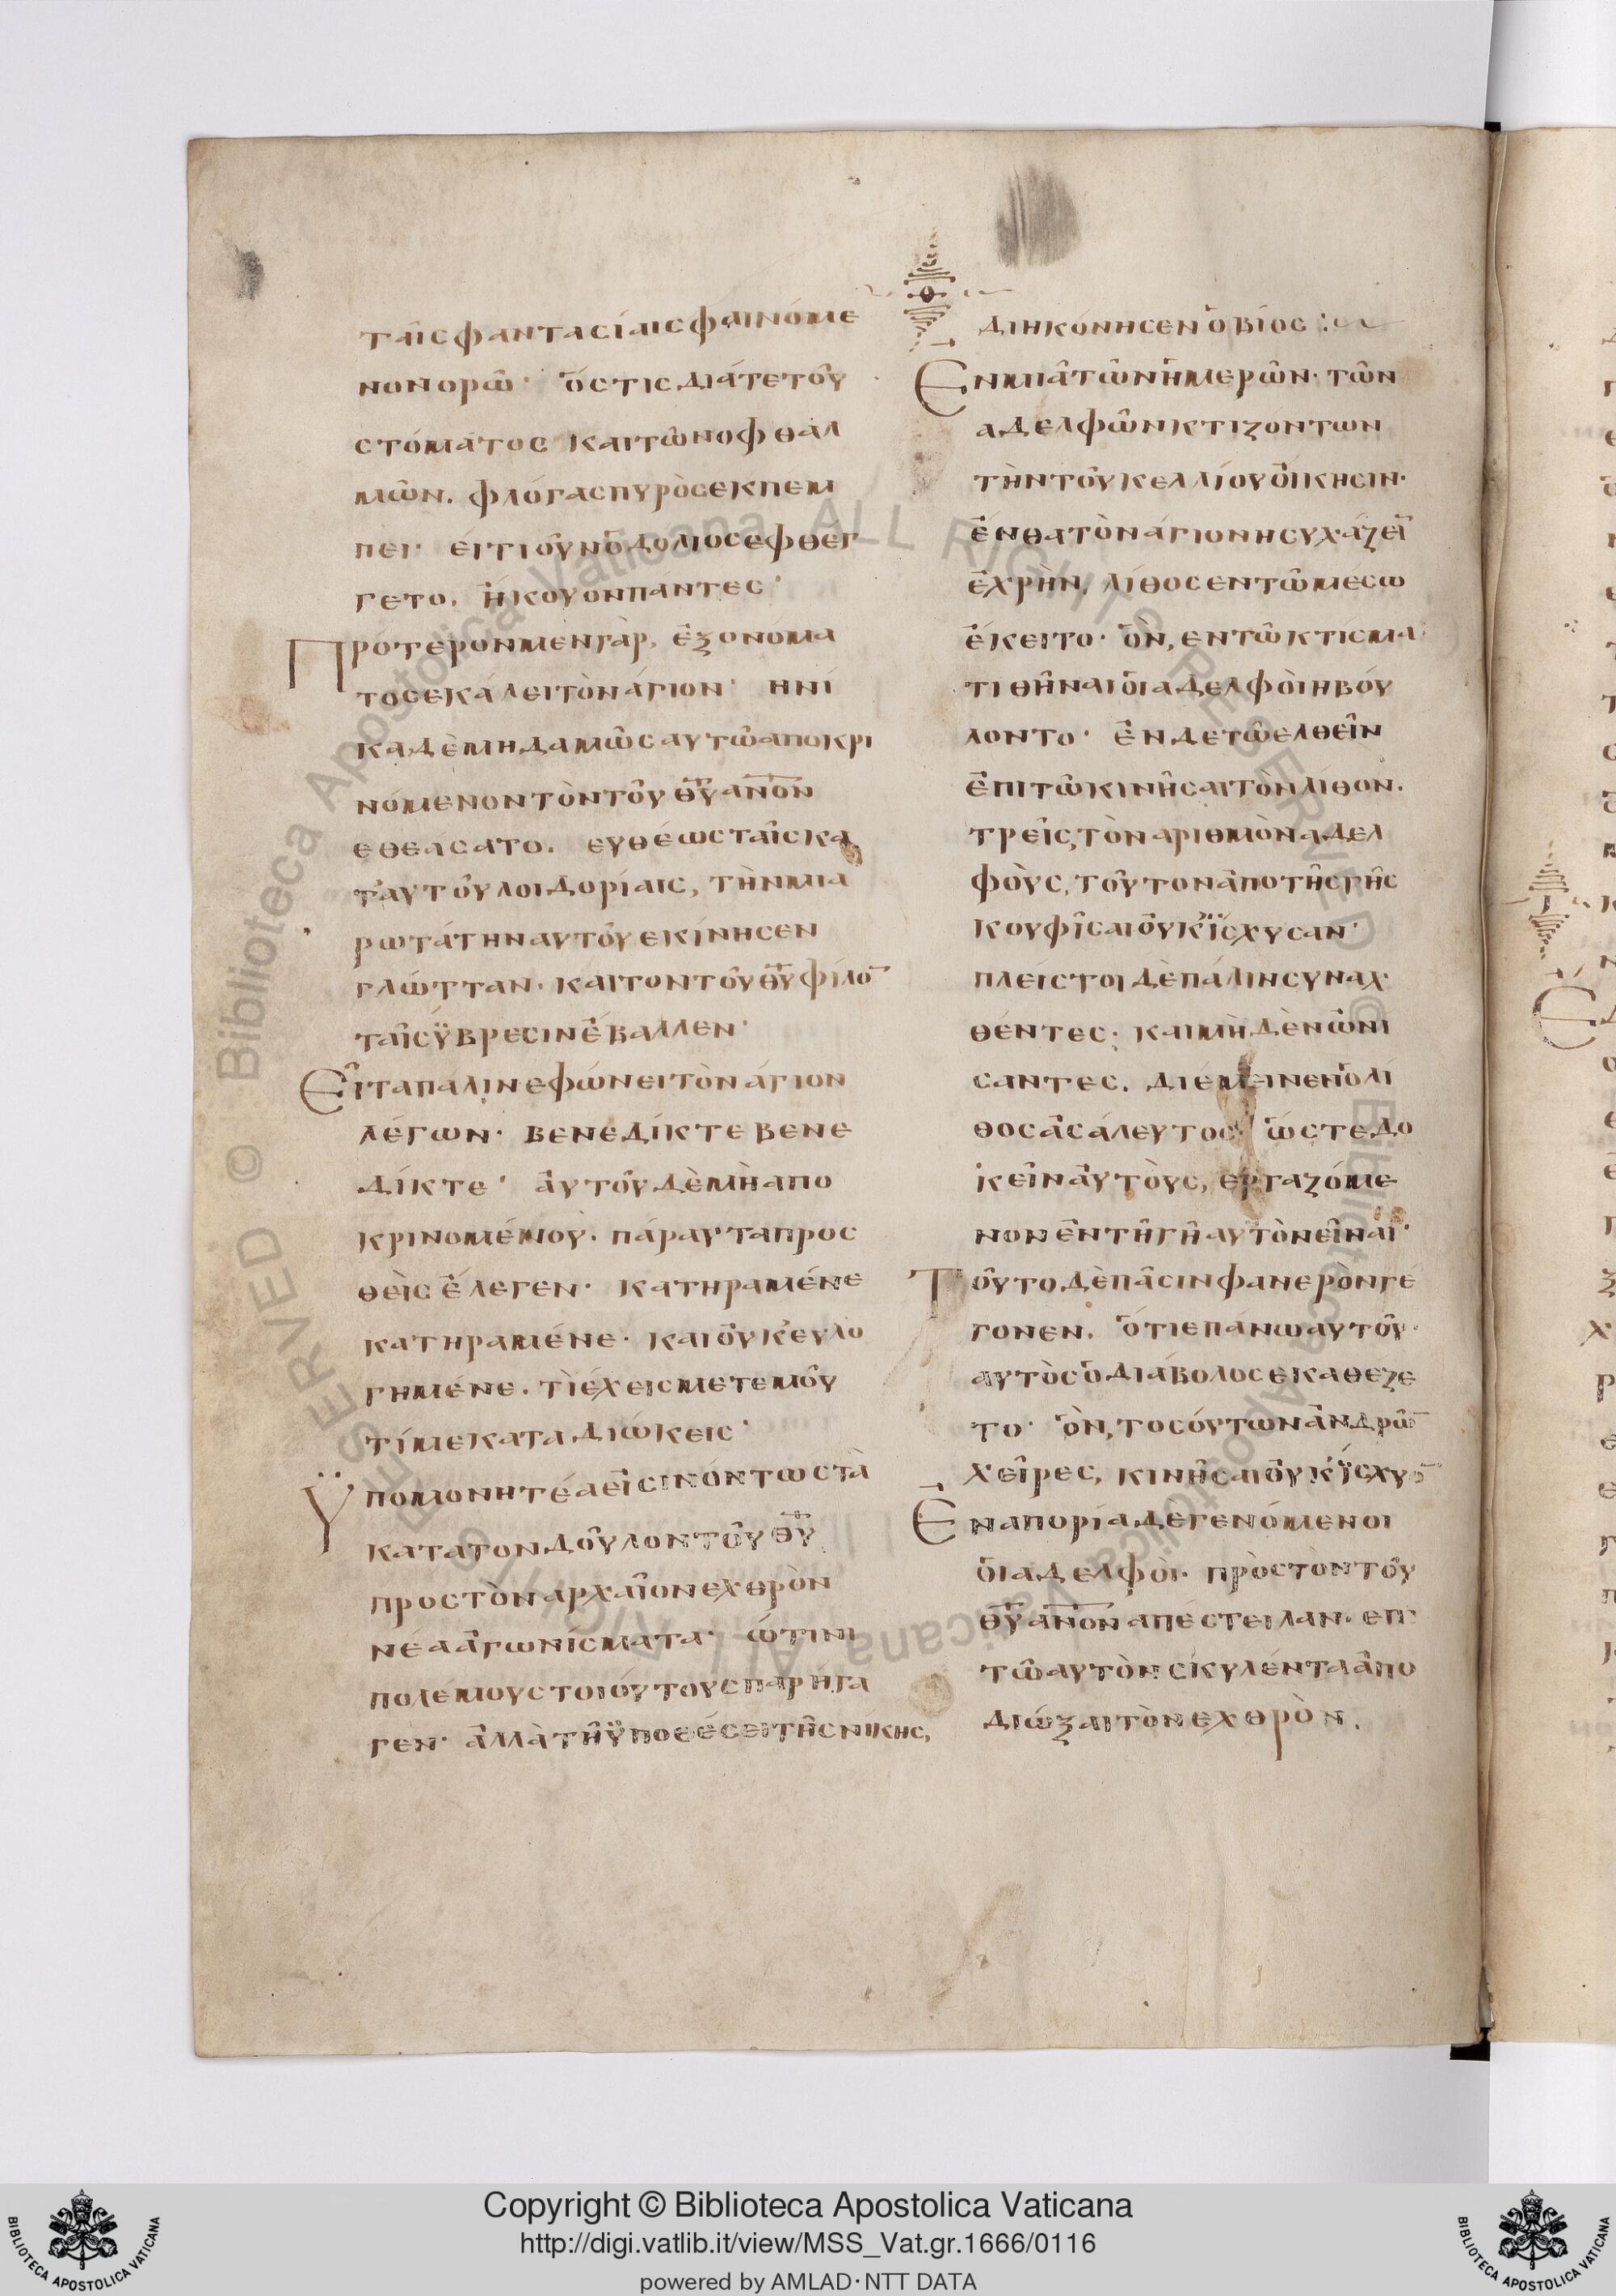 ταῖς φαντασίαις φαινόμε
νον ὁρῶ· ὅστις διάτε τοῦ
στόματος καὶ τῶν ὀφθαλ
μῶν. φλόγας πυρὸς ἐκπέμ
πει· εἴ τι οὖν ὁ δόλιος ἐφθέγ
γετο, ἤκουον πάντες·
Πρότερον μὲν γὰρ, ἐξ ὀνόμα
τος ἐκάλει τὸν ἅγιον· ἡνί
κα δὲ μηδαμῶς αὐτῶ ἀποκρι
νόμενον τὸν τοῦ θῡ ανον
ἐθεάσατο. εὐθέως ταῖς κα
τ' αὐτοῦ λοιδορίαις, τὴν μια
ρωτάτην αὐτοῦ ἐκίνησεν
γλώτταν· καὶ τὸν τοῦ θῡ φίλο̄
ταῖς ὕβρεσιν ἔβαλλεν·
Εἶτα πάλιν ἐφώνει τὸν ἅγιον
λέγων· βενεδίκτε βενε
δίκτε· αὐτοῦ δὲ μὴ ἀπο
κρινομένου. πάραυτα προσ
θεὶς ἔλεγεν· κατηραμένε
κατηραμένε· καὶ οὐκ εὐλο
γημένε. τί ἔχεις μετ' ἐμοῦ
τί με καταδιώκεις·
Ὑπομονητέα εἰσὶν ὄντως τὰ
κατὰ τὸν δοῦλον τοῦ θῡ
πρὸς τὸν ἀρχαῖον ἐχθρὸν
νέα ἀγωνίσματα· ὧτινι
πολέμους τοιούτους παρήγα
γεν· ἀλλὰ τῆ ὑποθέσει τῆς νίκης,
διηκόνησεν ὁ βίος :
θ
Ἐν μιᾶ τῶν ἡμερῶν· τῶν
ἀδελφῶν κτιζόντων
τὴν τοῦ κελλίου οἴκησιν·
ἔνθα τὸν ἅγιον ἡσυχάζει
ἐχρὴν, λίθος ἐν τῶ μέσω
ἔκειτο· ὃν, ἐν τῶ κτίσμα
τι θῆναι οἱ ἀδελφοὶ ἠβού
λοντο· ἐν δὲ τῶ ἐλθεῖν
ἐπὶ τῶ κινῆσαι τὸν λίθον.
τρεῖς, τὸν ἀριθμὸν ἀδελ
φοὺς, τοῦτον ἀπὸ τῆς γῆς
κουφῖσαι οὐκ ἴσχυσαν·
πλεῖστοι δὲ πάλιν συναχ
θέντες· καὶ μηδὲν ὠνί
σαντες. διέμεινεν ὁ λί
θος ἀσάλευτος· ὥστε δο
κεῖν αὐτοὺς, ἐργαζόμε
νον ἐν τῆ γῆ αὐτὸν εἶναι·
Τοῦτο δὲ πᾶσιν φανερὸν γέ
γονεν. ὅτι ἐπάνω αὐτοῦ·
αὐτὸς ὁ διάβολος ἐκαθέζε
το· ὃν, τοσούτων ἀνδρῶ̄
χεῖρες, κινῆσαι οὐκ ἴσχυο̄
Ἐν ἀπορία δὲ γενόμενοι
οἱ ἀδελφοὶ· πρὸς τὸν τοῦ
θῡ ανον ἀπέστειλαν· ἐπὶ
τῶ αὐτὸν σκυλέντα ἀπο
διώξαι τὸν ἐχθρὸν.
Copyright © Biblioteca Apostolica Vaticana
http://digi.vatlib.it/view/MSS_Vat.gr.1666/0116
powered by AMLAD·NTT DATA